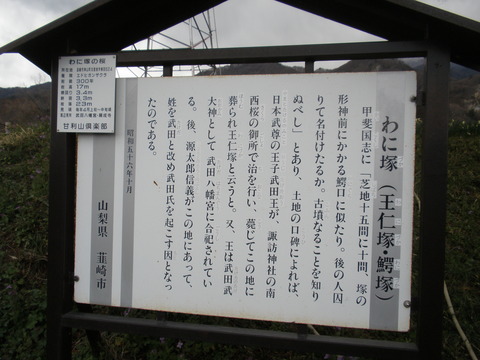 わに塚(王仁塚・鰐塚)
甲斐国志に「芝地十五間に十間、塚の
形神前にかかる鰐口に似たり。後の人因
りて名付けたるか。古墳なることを知り
ぬべし」とあり、土地の口碑によれば、
日本武尊の王子武田王が、諏訪神社の南
西桜の御所で治を行い、薨じてこの地に
葬られ王仁塚と云うと。又、王は武田武
大神として 武田八幡宮に合祀されてい
る。後、源太郎信義がこの地にあって、
姓を武田と改め武田氏を起こす因となっ
たのである。
昭和五十六年十月
山梨県 韮崎市
わに塚の桜
エドヒガンザクラ
300年
17m
3.4m
3.3m
23m
甘利山倶楽部